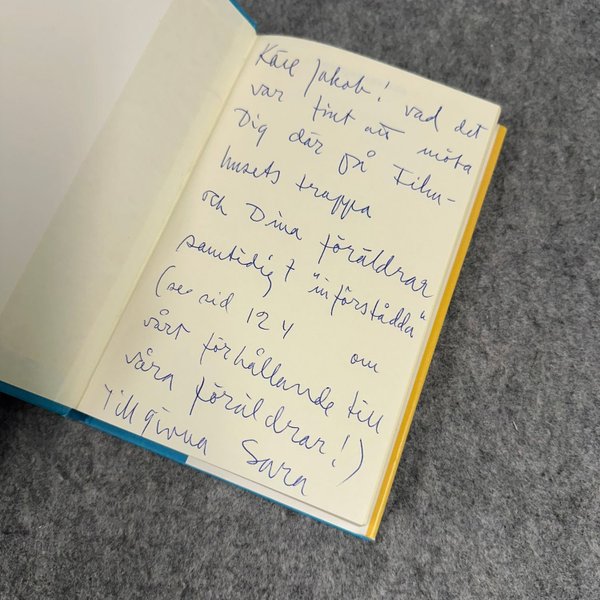 Käre Jakob! vad det
var fint att möta
Dig där på Film-
husets trappa
och Dina föräldrar
samtidigt "införstådda"
(se sid 124 om
vårt förhållande till
våra föräldrar!)
Tillgivna Sara